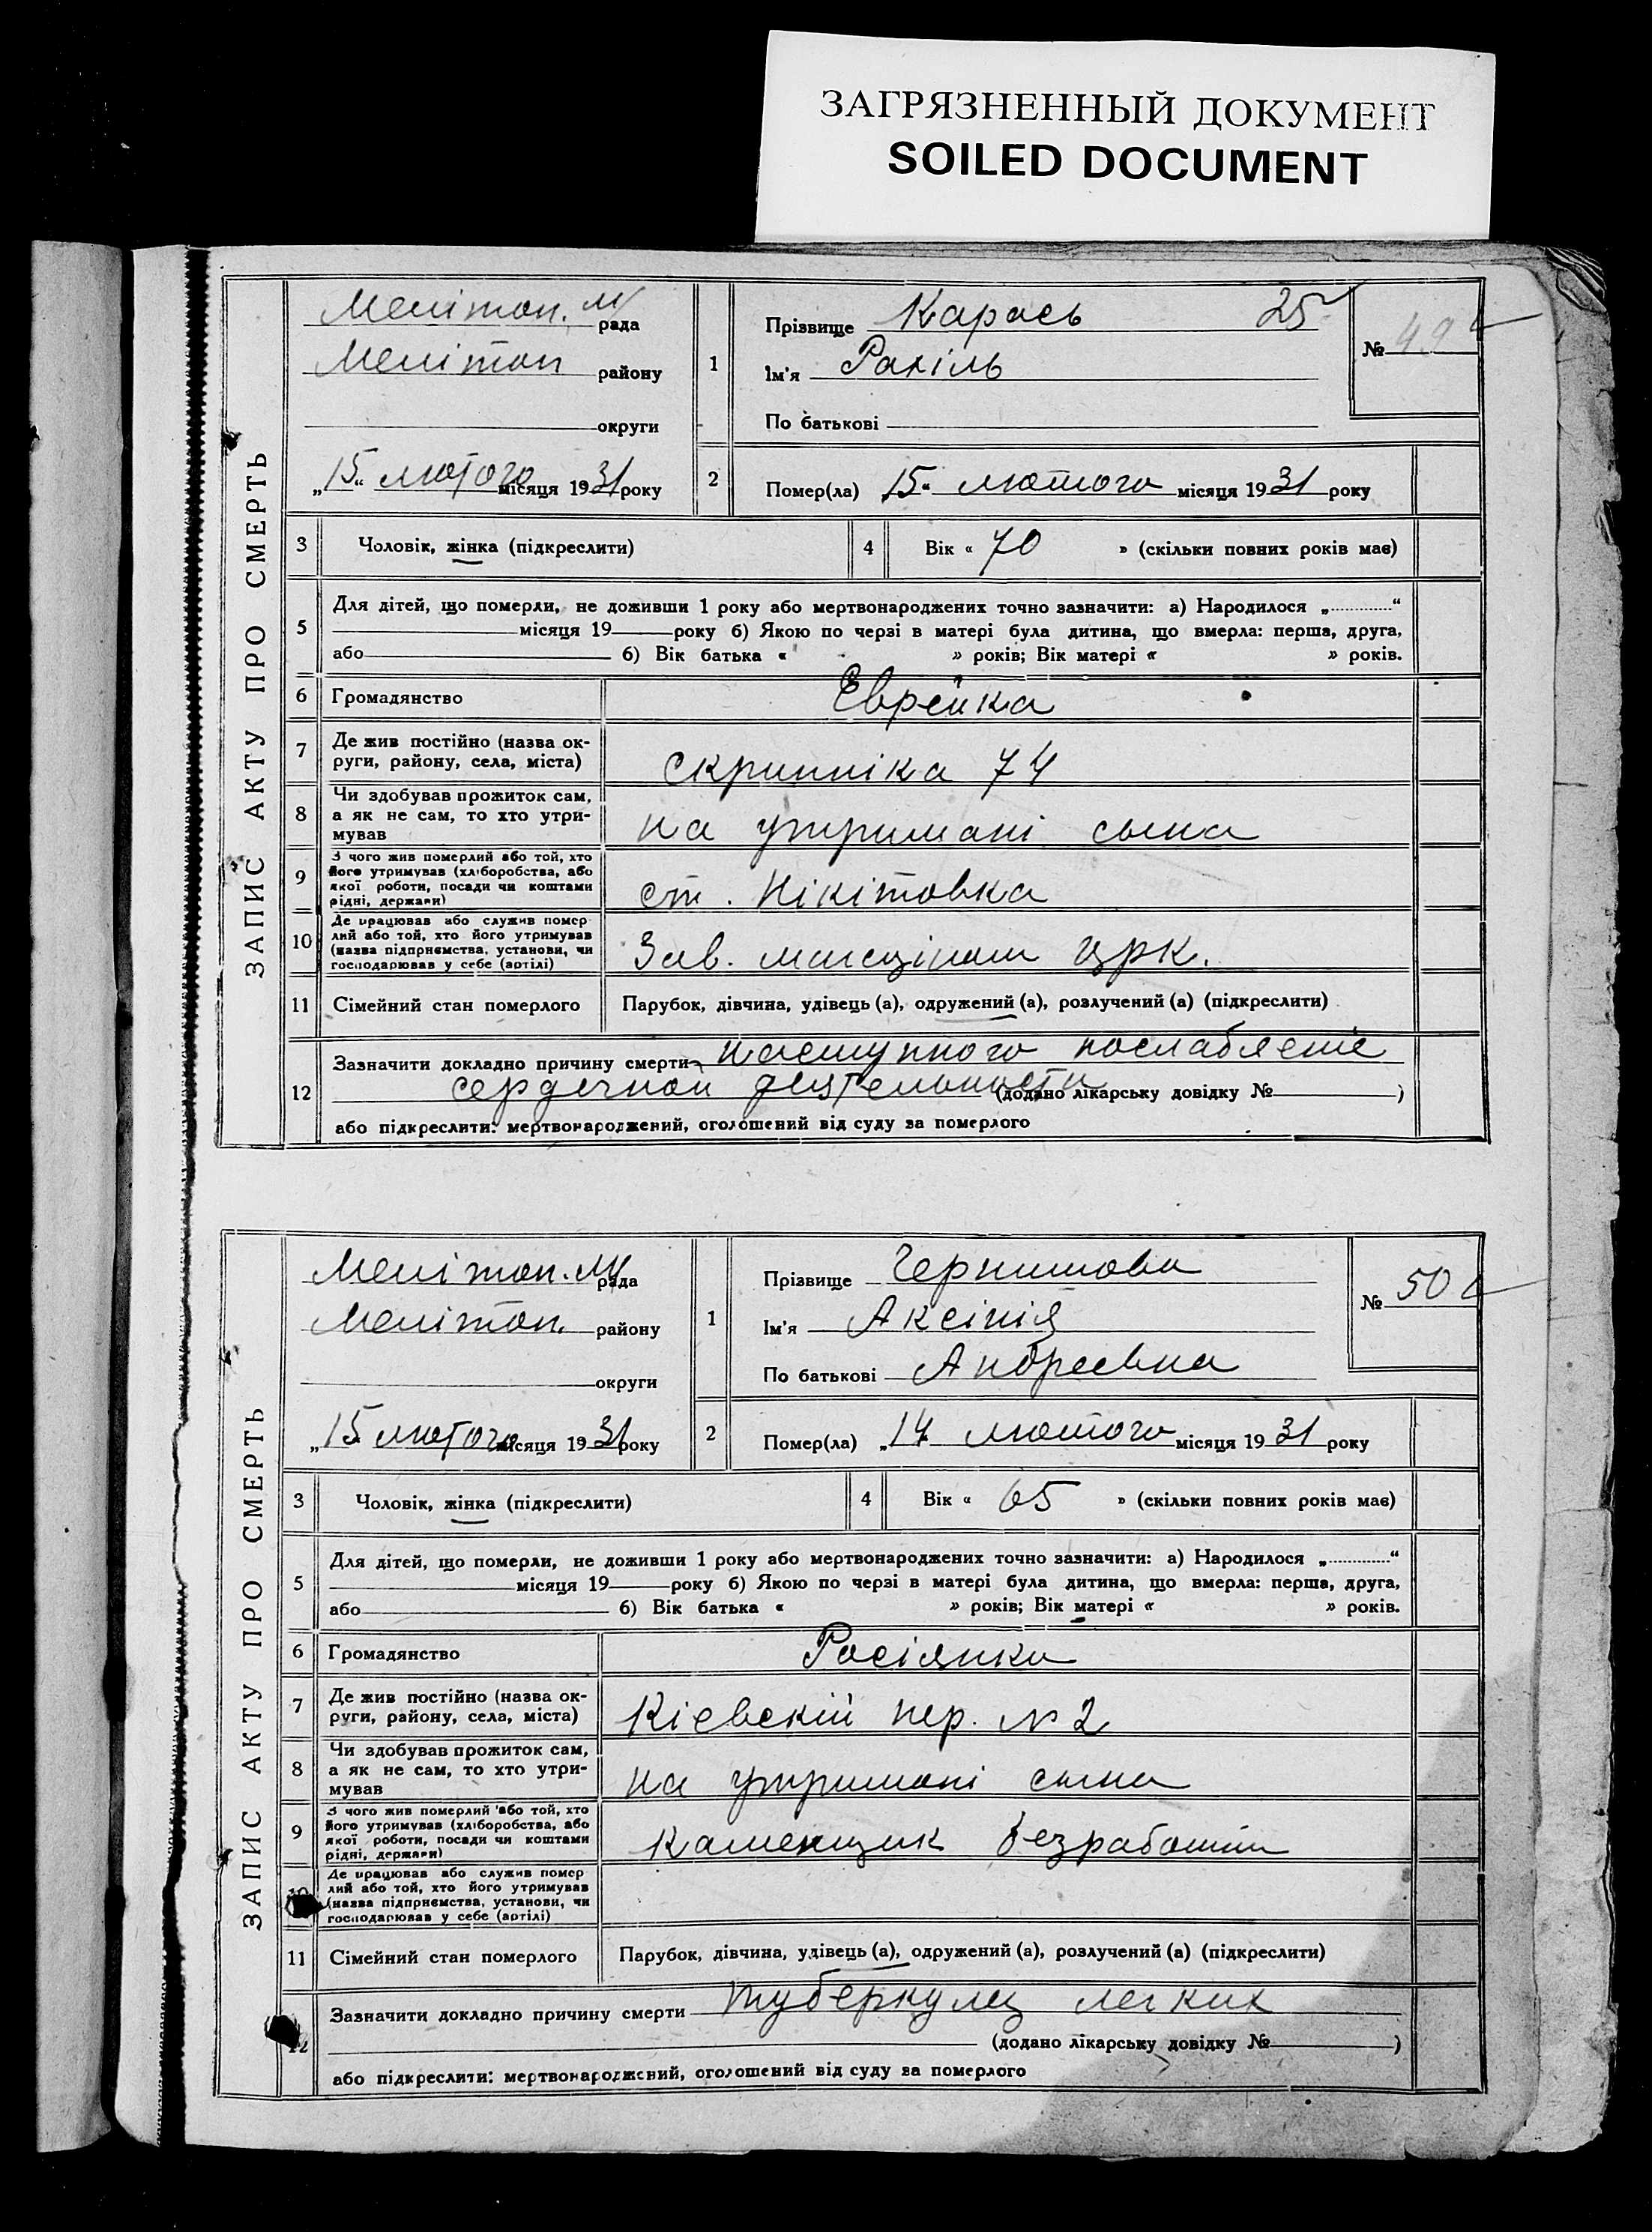 ЗАГРЯЗНЕННЫЙ ДОКУМЕНТ
SOILED DOCUMENT
ЗАПИС АКТУ ПРО СМЕРТЬ
Меліто​п. М рада
Меліто​п району
округи
„15“ лютого місяця 1931 року
1
Прізвище Карась 25
Ім'я Рахіль
По батькові
№ 49
2
Помер(ла) „15“ лютого місяця 1931 року
3 Чоловік, жінка (підкреслити)
4 Вік « 70 » (скільки повних років має)
5
Для дітей, що померли, не доживши 1 року або мертвонароджених точно зазначити: а) Народилося „............“
місяця 19 року б) Якою по черзі в матері була дитина, що вмерла: перша, друга,
або б) Вік батька « » років; Вік матері « » років.
6 Громадянство Еврейка
7 Де жив постійно (назва ок-
руги, району, села, міста) Скрипніка 74
8 Чи здобував прожиток сам,
а як не сам, то хто утри-
мував на утримані сына
9 З чого жив померлий або той, хто
його утримував (хліборобства, або
якої роботи, посади чи коштами
рідні, держави) ст. Нікітовка
10 Де працював або служив помер
лий або той, хто його утримував
(назва підприємства, установи, чи
господарював у себе (артілі) Зав. магаціном црк.
11 Сімейний стан померлого Парубок, дівчина, удівець (а), одружений (а), розлучений (а) (підкреслити)
12 Зазначити докладно причину смерти послабление
сердечной деятельности (додано лікарську довідку № )
або підкреслити: мертвонароджений, оголошений від суду за померлого
ЗАПИС АКТУ ПРО СМЕРТЬ
Меліто​п. М рада
Меліто​п. району
округи
„15 лютого місяця 1931 року
1
Прізвище Чернишова
Ім'я Аксінія
По батькові Андреевна
№ 50
2
Помер(ла) „14 лютого місяця 1931 року
3 Чоловік, жінка (підкреслити)
4 Вік « 65 » (скільки повних років має)
5
Для дітей, що померли, не доживши 1 року або мертвонароджених точно зазначити: а) Народилося „............“
місяця 19 року б) Якою по черзі в матері була дитина, що вмерла: перша, друга,
або б) Вік батька « » років; Вік матері « » років.
6 Громадянство Росіянка
7 Де жив постійно (назва ок-
руги, району, села, міста) Кіевскій пер. № 2
8 Чи здобував прожиток сам,
а як не сам, то хто утри-
мував на утримані сына
9 З чого жив померлий або той, хто
його утримував (хліборобства, або
якої роботи, посади чи коштами
рідні, держави) Каменщик безработній
10 Де працював або служив помер
лий або той, хто його утримував
(назва підприємства, установи, чи
господарював у себе (артілі)
11 Сімейний стан померлого Парубок, дівчина, удівець (а), одружений (а), розлучений (а) (підкреслити)
12 Зазначити докладно причину смерти туберкулез легких
(додано лікарську довідку № )
або підкреслити: мертвонароджений, оголошений від суду за померлого